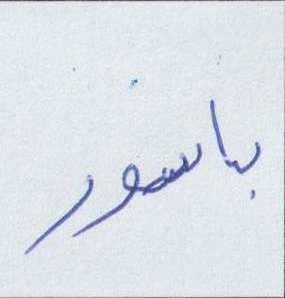 باسفور